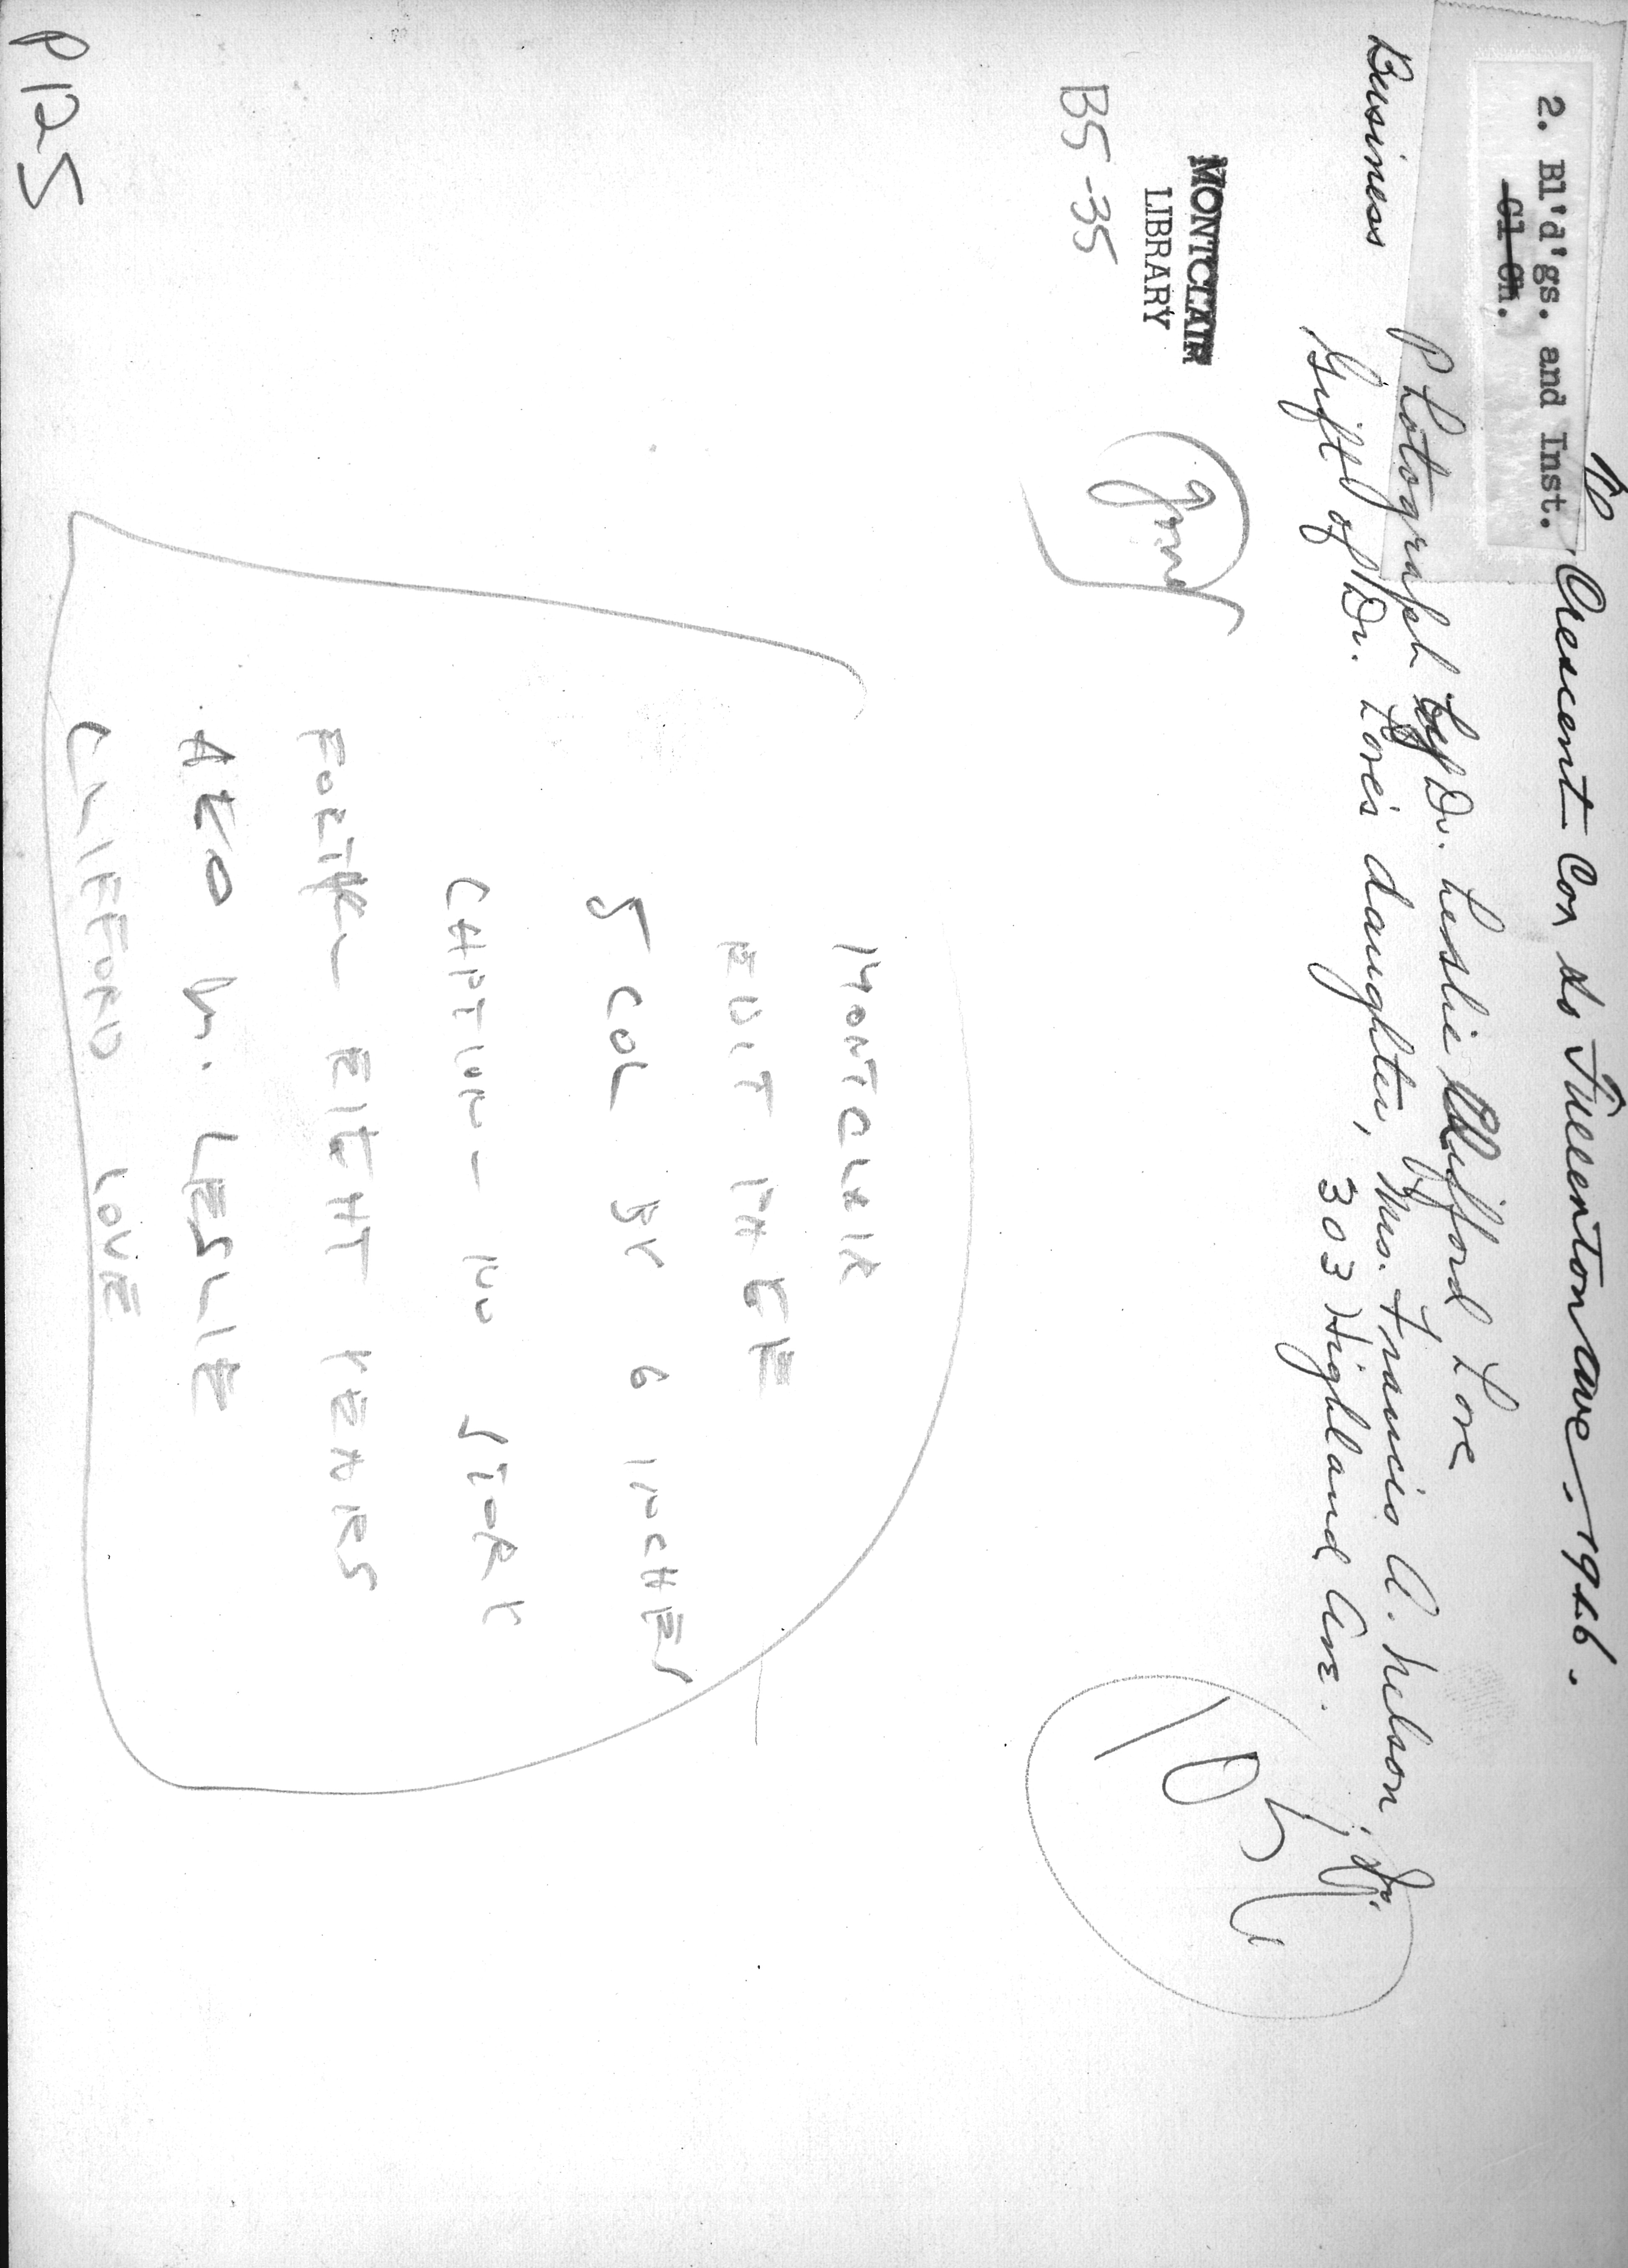 2. Bl'd'gs. and Inst.
Gl Ch.
N. Crescent Cor So Fullerton ave. 1926.
Business
Photograph by Dr. Leslie Clifford Love
Gift of Dr. Love's daughter, Mrs. Francis A. Nelson, Jr.
303 Highland Ave.
MONTCLAIR
LIBRARY
B5-35
MONTCLAIR
EDIT PAGE
5 COL BY 6 INCHES
CAPTION - NO STORY
FORTY-EIGHT YEARS
AGO Dr. LESLIE
CLIFFORD LOVE
P125